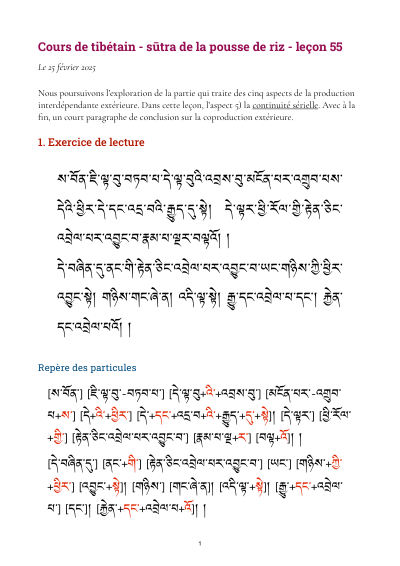 Cours de tibétain - sūtra de la pousse de riz - leçon 55
Le 25 février 2025
Nous poursuivons l'exploration de la partie qui traite des cinq aspects de la production
interdépendante extérieure. Dans cette leçon, l'aspect 5) la continuité sérielle. Avec à la
fin, un court paragraphe de conclusion sur la coproduction extérieure.
1. Exercice de lecture
ས་བོན་ཇི་ལྟ་བུ་བཏབ་པ་དེ་ལྟ་བུའི་འབྲས་བུ་མངོན་པར་འགྲུབ་པས་
དེའི་ཕྱིར་དེ་དང་འདྲ་བའི་རྒྱུད་དུ་སྟེ། དེ་ལྟར་ཕྱི་རོལ་གྱི་རྟེན་ཅིང་
འབྲེལ་པར་འབྱུང་བ་རྣམ་པ་ལྔར་བལྟའོ། །
དེ་བཞིན་དུ་ནང་གི་རྟེན་ཅིང་འབྲེལ་པར་འབྱུང་བ་ཡང་གཉིས་ཀྱི་ཕྱིར་
འབྱུང་སྟེ། གཉིས་གང་ཞེ་ན། འདི་ལྟ་སྟེ། རྒྱུ་དང་འབྲེལ་པ་དང་། རྐྱེན་
དང་འབྲེལ་པའོ། །
Repère des particules
[ས་བོན་] [ཇི་ལྟ་བུ་-བཏབ་པ་] [དེ་ལྟ་བུ+འི་+འབྲས་བུ་] [མངོན་པར་-འགྲུབ་
པ+ས་] [དེ+འི་+ཕྱིར་] [དེ་+དང་+འདྲ་བ+འི་+རྒྱུད་+དུ་+སྟེ]། [དེ་ལྟར་] [ཕྱི་རོལ་
+གྱི་] [རྟེན་ཅིང་འབྲེལ་པར་འབྱུང་བ་] [རྣམ་པ་ལྔ+ར་] [བལྟ+འོ]། །
[དེ་བཞིན་དུ་] [ནང་+གི་] [རྟེན་ཅིང་འབྲེལ་པར་འབྱུང་བ་] [ཡང་] [གཉིས་+ཀྱི་
+ཕྱིར་] [འབྱུང་+སྟེ]། [གཉིས་] [གང་ཞེ་ན]། [འདི་ལྟ་+སྟེ]། [རྒྱུ་+དང་+འབྲེལ་
པ་] [དང་]། [རྐྱེན་+དང་+འབྲེལ་པ+འོ]། །
1